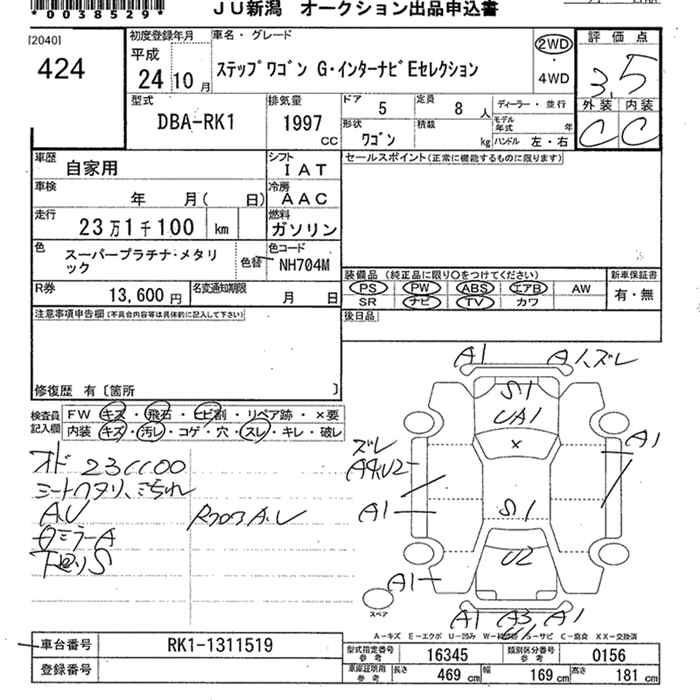 *0038529*
JU新潟 オークション出品申込書
[2040]
424
初度登録年月
平成
24年10月
車名・グレード
ステップワゴン G・インターナビEセレクション
2WD
・
4WD
評価点
3.5
外装 内装
C C
型式
DBA-RK1
排気量
1997
cc
ドア 5
定員 8 人
形状 ワゴン
積載 kg
ディーラー・並行
モデル年式 年
ハンドル 左・右
車歴 自家用
シフト IAT
車検 年 月( 日)
冷房 AAC
走行 23万1千100 km
燃料 ガソリン
色 スーパープラチナ・メタリック
色替
色コード NH704M
R券 13,600円
名変通知期限 月 日
セールスポイント(正常に機能するものに限ります)
装備品 (純正品に限り○をつけてください)
PS PW ABS エアB AW
SR ナビ TV カワ
新車保証書
有・無
後日品
注意事項申告欄(不具合内容等は具体的に記入して下さい)
修復歴 有〔箇所 〕
検査員記入欄
FW キズ・飛石・ヒビ割・リペア跡・×要
内装 キズ・汚レ・コゲ・穴・スレ・キレ・破レ
オド 231100
シートヘタリ、こちれ
A.U
ロミラーA
下廻りS
A1 A1、ズレ
S1
UA1
×
A1
ズレ
A4U2
A1
S1
U2
A1
スペア
A1 A3 A1
A-キズ E-エクボ U-凹み S-サビ C-腐食 XX-交換済
車台番号 RK1-1311519
登録番号
型式指定番号 参考 16345
類別区分番号 参考 0156
車庫証明用 参考 長さ 469cm 幅 169cm 高さ 181cm